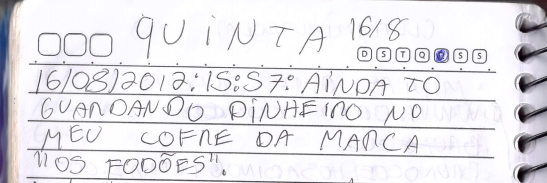 QUINTA 16/8
D S T Q Q S S
16/08/2012: 15:57: AINDA TO
GUARDANDO DINHEIRO NO
MEU COFRE DA MARCA
"OS FODÕES".